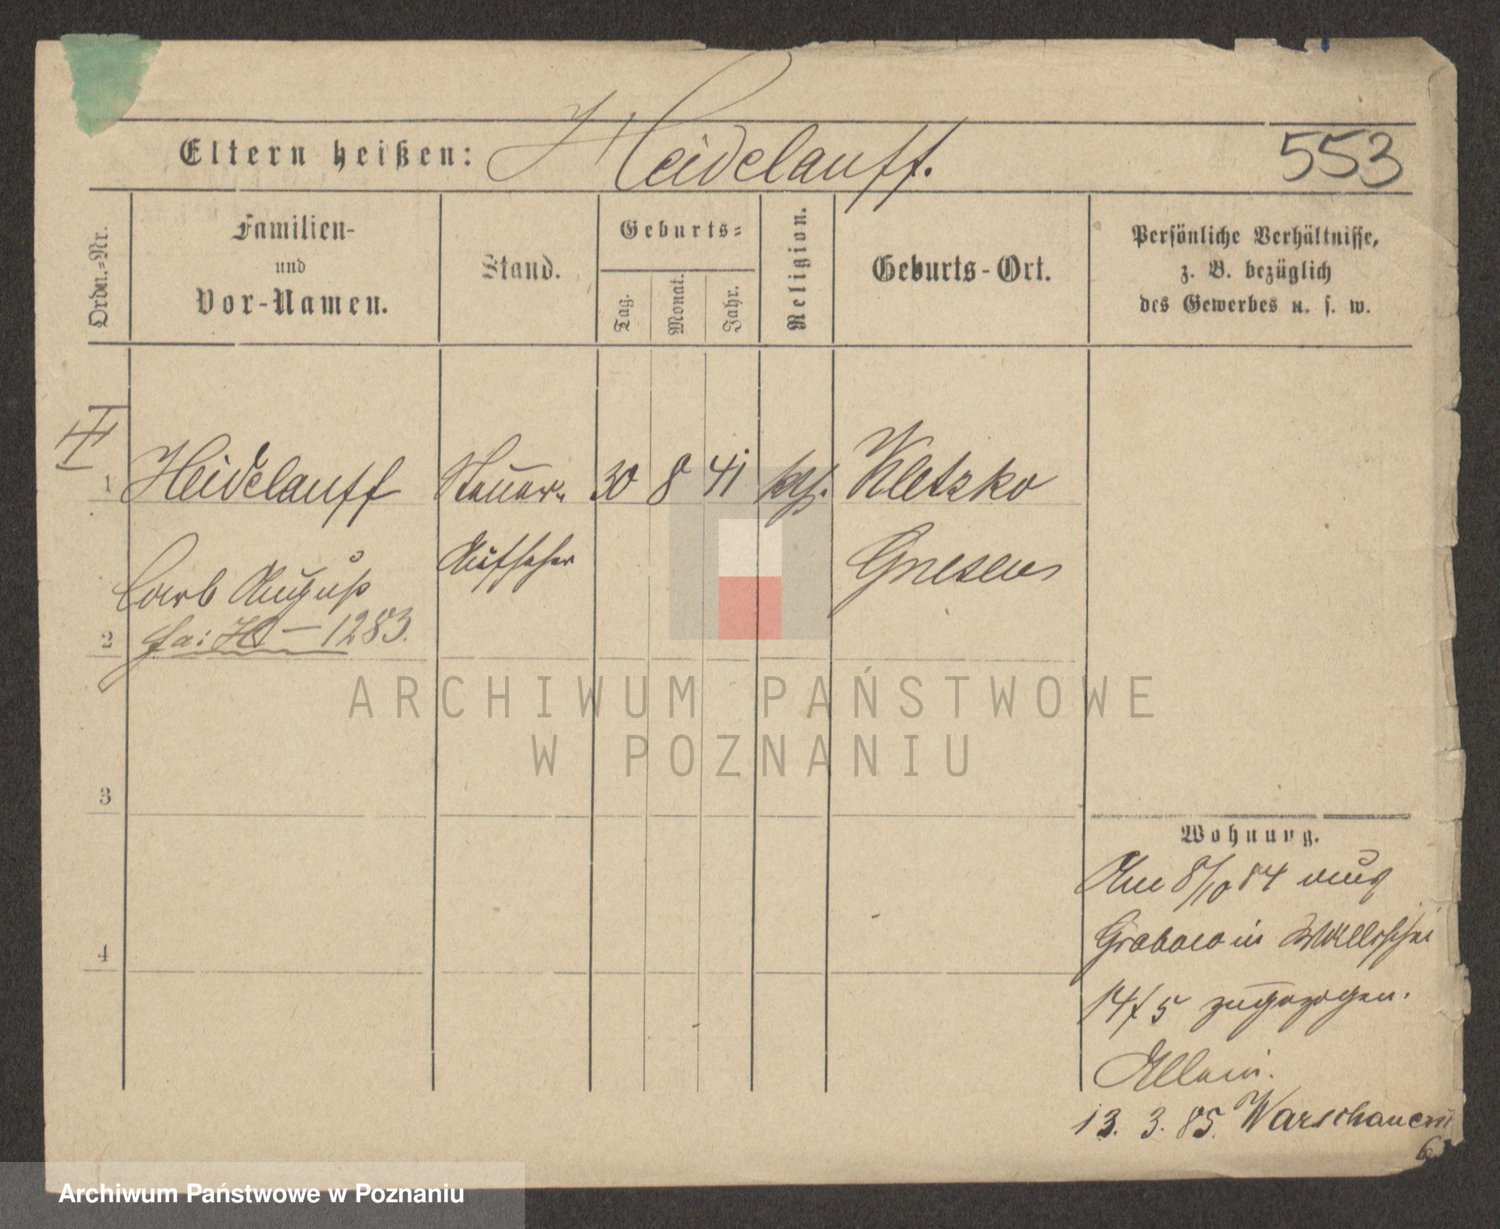 Eltern heißen: Heidelauff. 553
Ordn.=Nr.
Familien-
und
Vor-Namen.
Stand.
Geburts=
Tag.
Monat.
Jahr.
Religion.
Geburts-Ort.
Persönliche Verhältnisse,
z. B. bezüglich
des Gewerbes u. s. w.
III
1 Heidelauff Steuer- 30 8 41 Kletzko
Carl August Aufseher Gnesen
2 fa: H — 1283.
3
4
Wohnung.
Am 8/10 84 aus
Grabow in Wallischei
14/5 zugezogen.
Allein.
13. 3. 85. Warschauerstr
6
ARCHIWUM PAŃSTWOWE
W POZNANIU
Archiwum Państwowe w Poznaniu